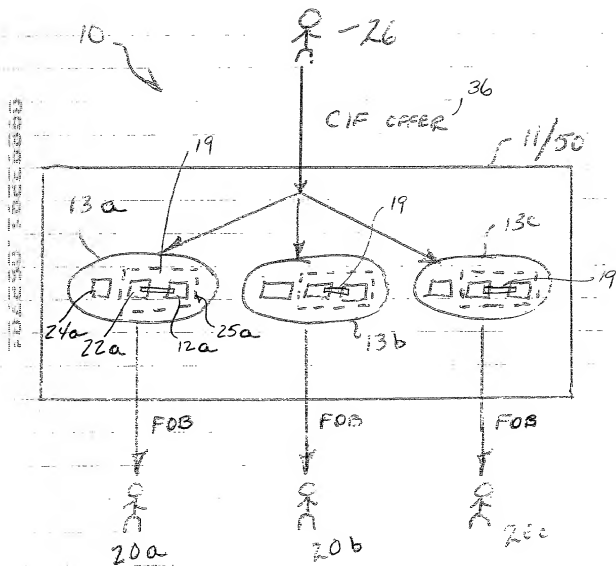 10
26
CIF OFFER 36
11/50
13a
19
19
13c
19
24a
22a
12a
25a
13b
FOB
FOB
FOB
20a
20b